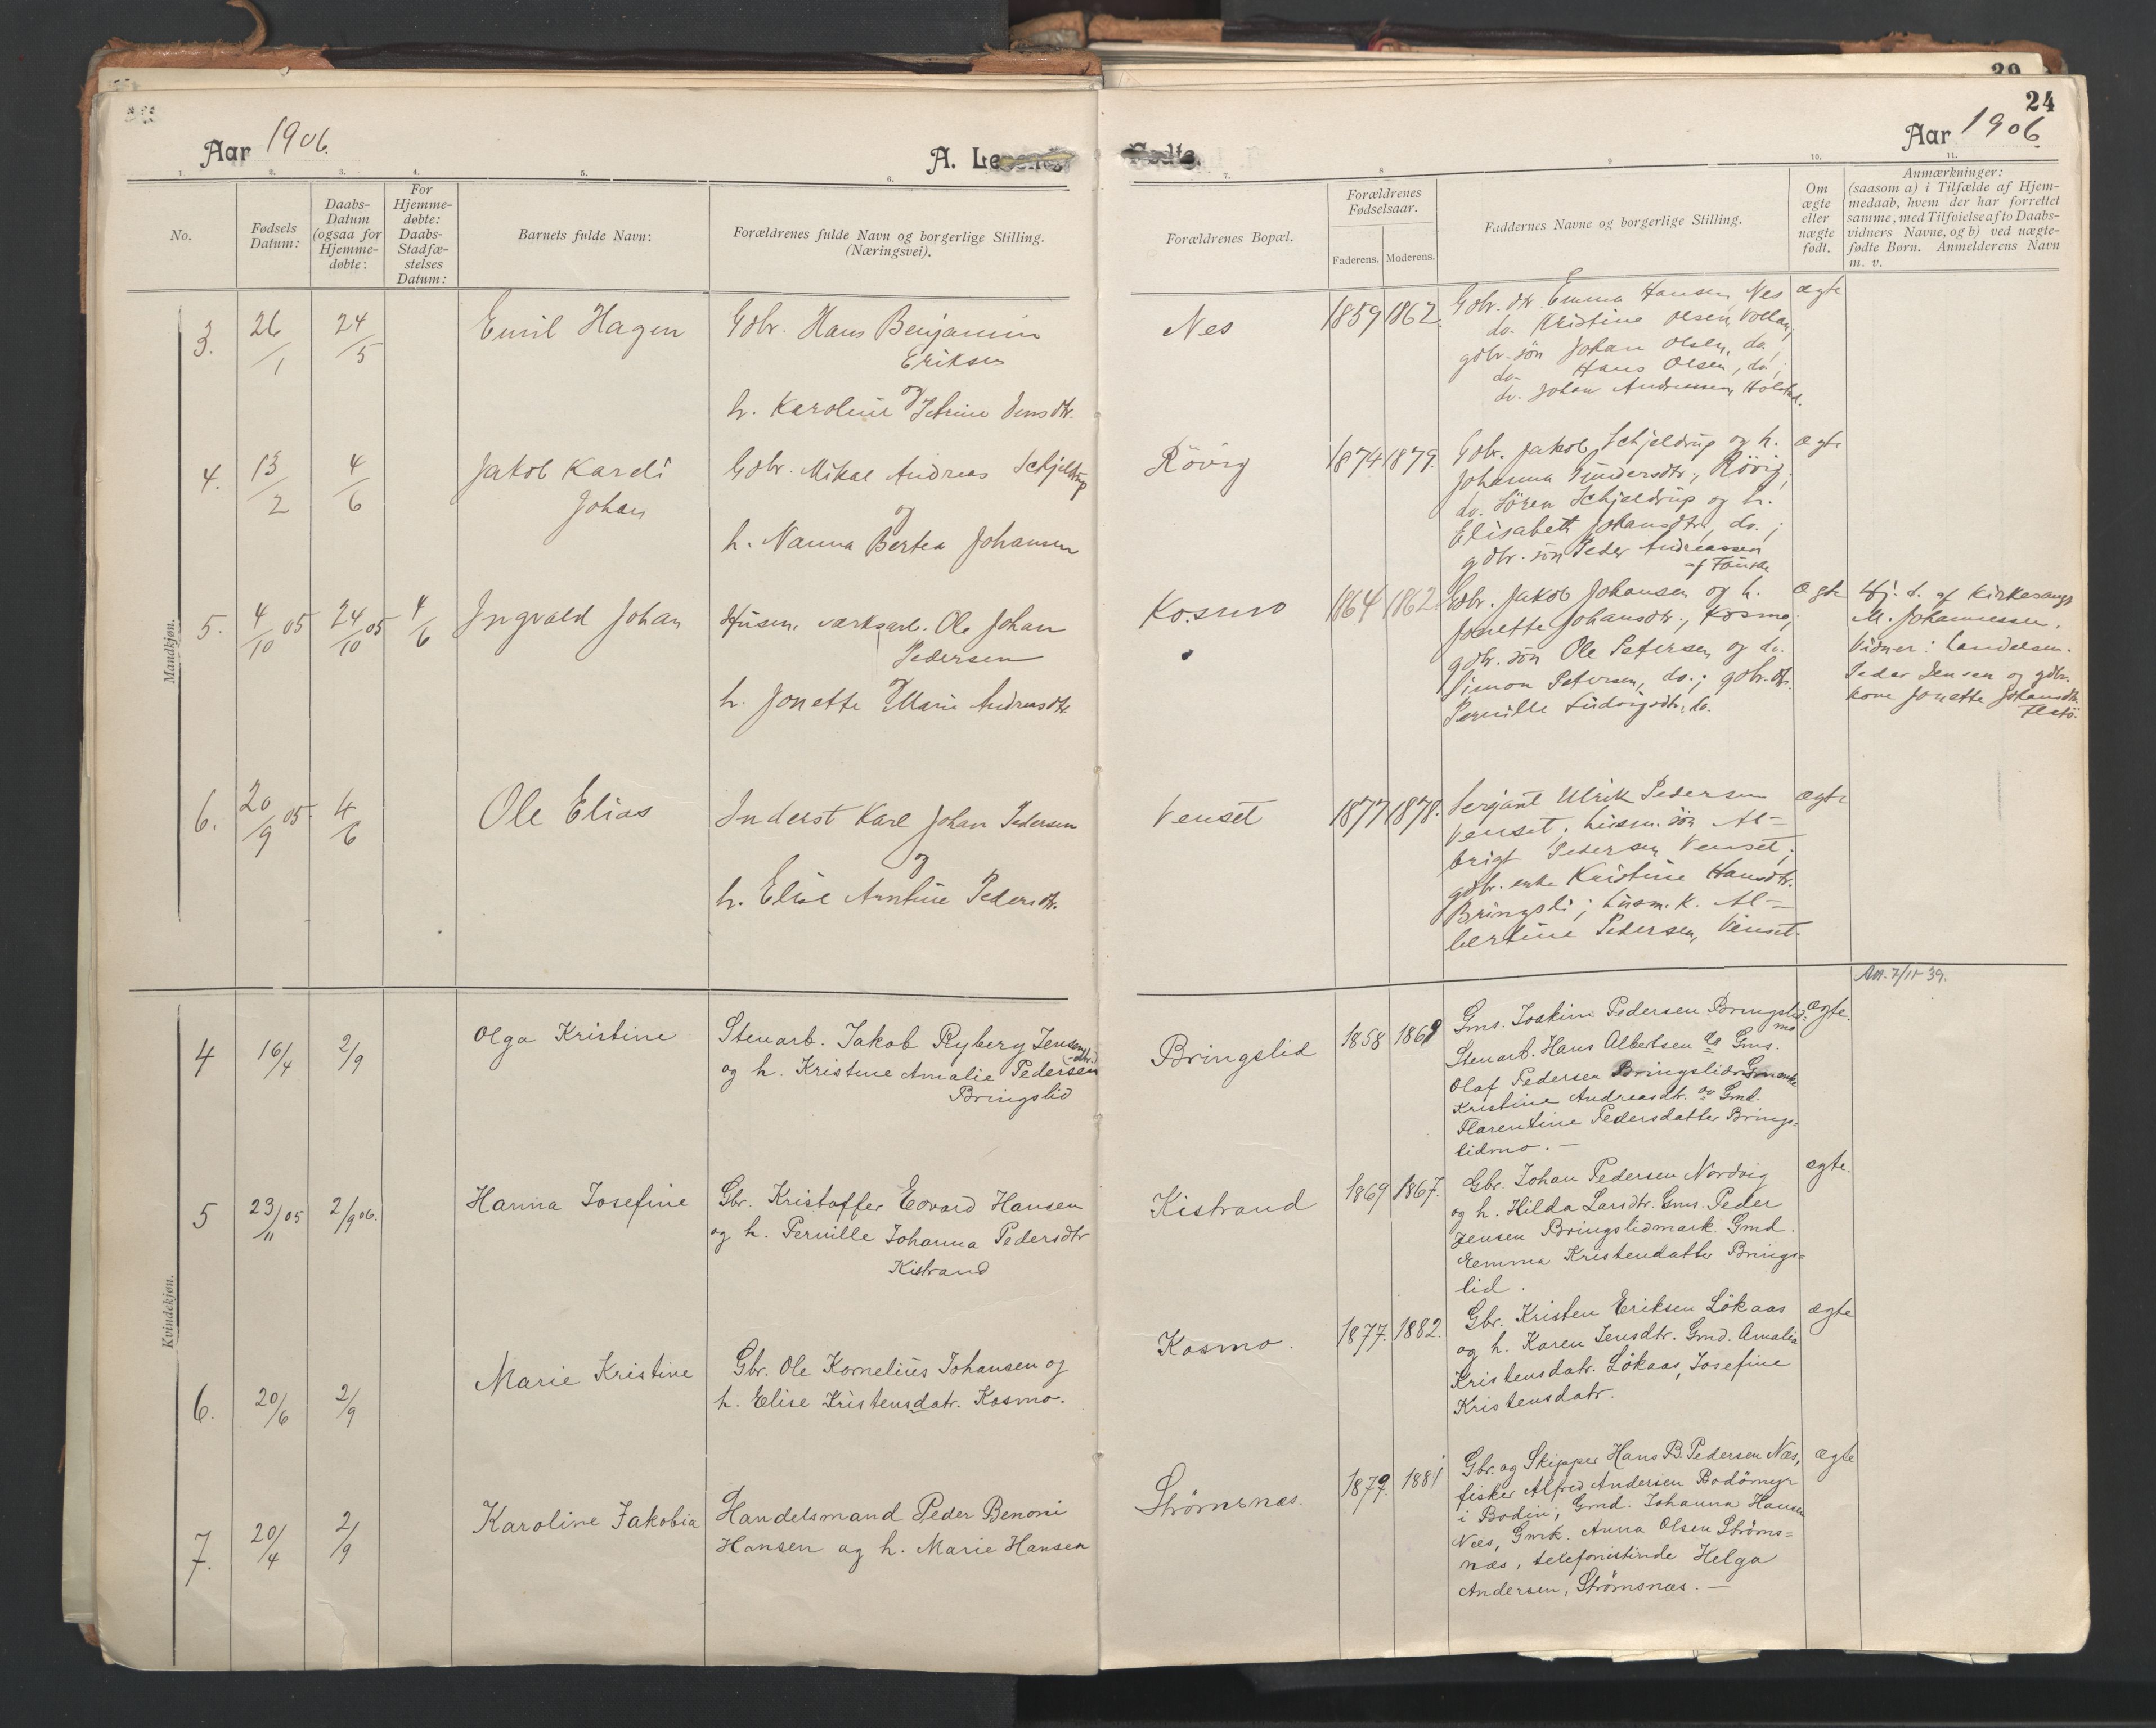 24
Aar 1906.
A. Levende
Fødte.
Aar 1906.
1. 2. 3. 4. 5. 6.
7. 8 9 10. 11.
No.
Fødsels
Datum:
Daabs-
Datum
(ogsaa for
Hjemme-
døbte:
For
Hjemme-
døbte:
Daabs-
Stadfæ-
stelses
Datum:
Barnets fulde Navn:
Forældrenes fulde Navn og borgerlige Stilling.
(Næringsvei).
Forældrenes Bopæl.
Forældrenes
Fødselsaar.
Faderens. Moderens.
Faddernes Navne og borgerlige Stilling.
Om
ægte
eller
uægte
født.
Anmærkninger:
(saasom a) i Tilfælde af Hjem-
medaab, hvem der har forrettet
samme, med Tilføielse af to Daabs-
vidners Navne, og b) ved uægte-
fødte Børn. Anmelderens Navn
m. v.
Mandkjøn.
3. 26/1 24/5 Emil Hagen
Gdbr. Hans Benjamin
Eriksen
og
h. Karoline Petrine Jensdtr.
Nes 1859 1862.
Gdbr. dtr. Emma Hansen, Nes
do. Kristine Olsen, Vollan;
gdbr. sön Johan Olsen, do;
do. Hans Olsen, do;
do. Johan Andreassen, Holstad.
ægte
4. 13/2 4/6 Jakob Kardi
Johan
Gdbr. Mikal Andreas Schjeldrup
og
h. Nanna Bertea Johansen
Rövig 1874 1879.
Gdbr. Jakob Schjeldrup og h.
Johanna Gundersdtr., Rövig;
do. Sören Schjeldrup og h.
Elisabeth Johansdtr., do.;
gdbr. sön Peder Andreassen
af Fauske
ægte
5. 4/10 05 24/10 05 4/6 Ingvald Johan
Husm. værksarb. Ole Johan
Pedersen
og
h. Jonette Marie Andreasdtr.
Kosmo 1864 1862.
Gdbr. Jakob Johansen og h.
Jonette Johansdtr., Kosmo;
gdbr. sön Ole Petersen og do.
Simon Petersen, do.; gdbr. dtr.
Pernille Ludvigsdtr., do.
ægte
Hj. d. af Kirkesanger
M. Johannessen.
Vidner: Landelsm.
Peder Jensen og gdbr.
kone Jonette Johansdtr.
6. 20/9 05. 4/6 Ole Elias
Inderst Karl Johan Pedersen
og
h. Elise Arntine Pedersdtr.
Venset 1877 1878.
Sergjant Ulrik Pedersen
Venset; husm. sön Al-
brigt Pedersen Venset;
gdbr. enke Kristine Hansdtr.
Bringsli; husm. k. Al-
bertine Pedersen, Venset.
ægte
Att. 7/11-39.
Kvindekjøn.
4 16/4 2/9 Olga Kristine
Stenarb. Jakob Ryberg Jensen
og h. Kristine Amalie Pedersen
Bringslid
Bringslid 1858 1868
Gms. Joakim Pedersen Bringslid-
mo
Stenarb. Hans Albertsen do Gms.
Olaf Pedersen Bringslid Gmenke
Kristine Andreasdtr. og Gmd.
Florentine Pedersdatter Brings-
lidmo. —
ægte.
5 23/11 05 2/9 06. Hanna Josefine
Gbr. Kristoffer Edvard Hansen
og h. Pernille Johanna Pedersdtr
Kistrand
Kistrand 1869 1867.
Gbr. Johan Pedersen Nordvig
og h. Hilda Larsdtr. Gms. Peder
Jensen Bringslidmark. Gmd.
Emma Kristendatter Brings-
lid.
ægte.
6. 20/6 2/9 Marie Kristine
Gbr. Ole Kornelius Johansen og
h. Elise Kristensdatr. Kosmo.
Kosmo. 1877. 1882.
Gbr. Kristen Eriksen Lökaas
og h. Karen Jensdtr. Gmd. Amalia
Kristensdatr. Lökaas, Josefine
Kristensdatr.
ægte
7. 20/4 2/9 Karoline Jakobia
Handelsmand Peder Benoni
Hansen og h. Marie Hansen
Strømsnæs. 1879. 1881
Gbr. og Skipper Hans B. Pedersen Næs,
fisker Alfred Andersen Bodömyr
i Bodin, Gmd. Johanna Hansen
Næs, Gmk. Anna Olsen Ströms-
næs, telefonistinde Helga
Andersen, Strömsnæs. —
ægte